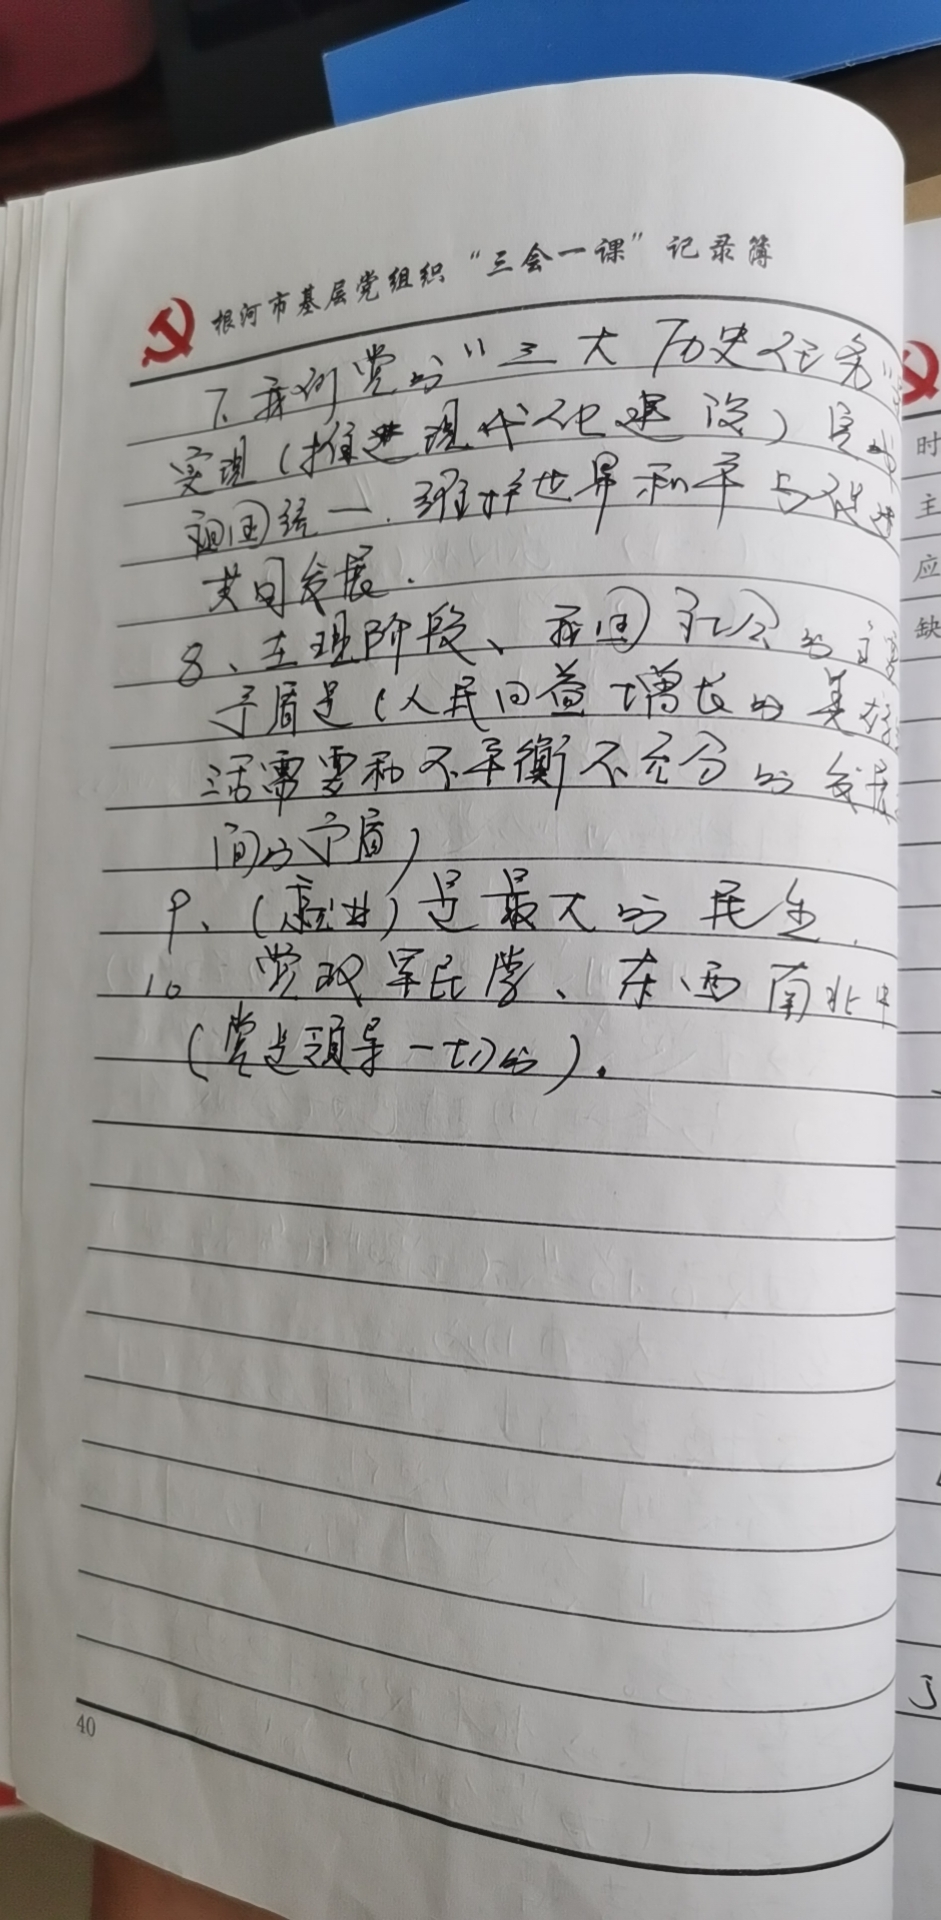 根河市基层党组织“三会一课”记录簿
7、我们党的“三大历史任务”
实现（推进现代化建设）完成
祖国统一、维护世界和平与促进
共同发展．
8、在现阶段、我国社会的主要
矛盾是（人民日益增长的美好
活需要和不平衡不充分的发展
间的矛盾）
9、（就业）是最大的民生．
10 党政军民学、东西南北中
（党是领导一切的）．
40
时
主
应
缺